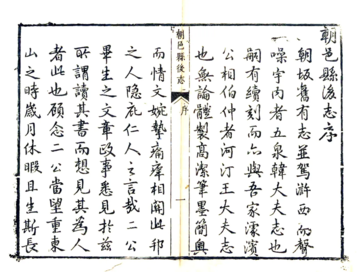 朝邑縣後志序
朝坂舊有志並駕滸西而聲
噪宇内者五泉韓大夫志也
嗣有續刻而六與吾家濱
公相伯仲者河汀王大夫志
也無論體製高潔筆墨簡奧
朝邑縣後志
序
一
而情文婉摯痛痒相關此邦
之人隱庇仁人之言哉二公
畢生之文章政事悉見於兹
所謂讀其書而想見其為人
者此也顧念二公當望重東
山之時歲月休暇且生斯長